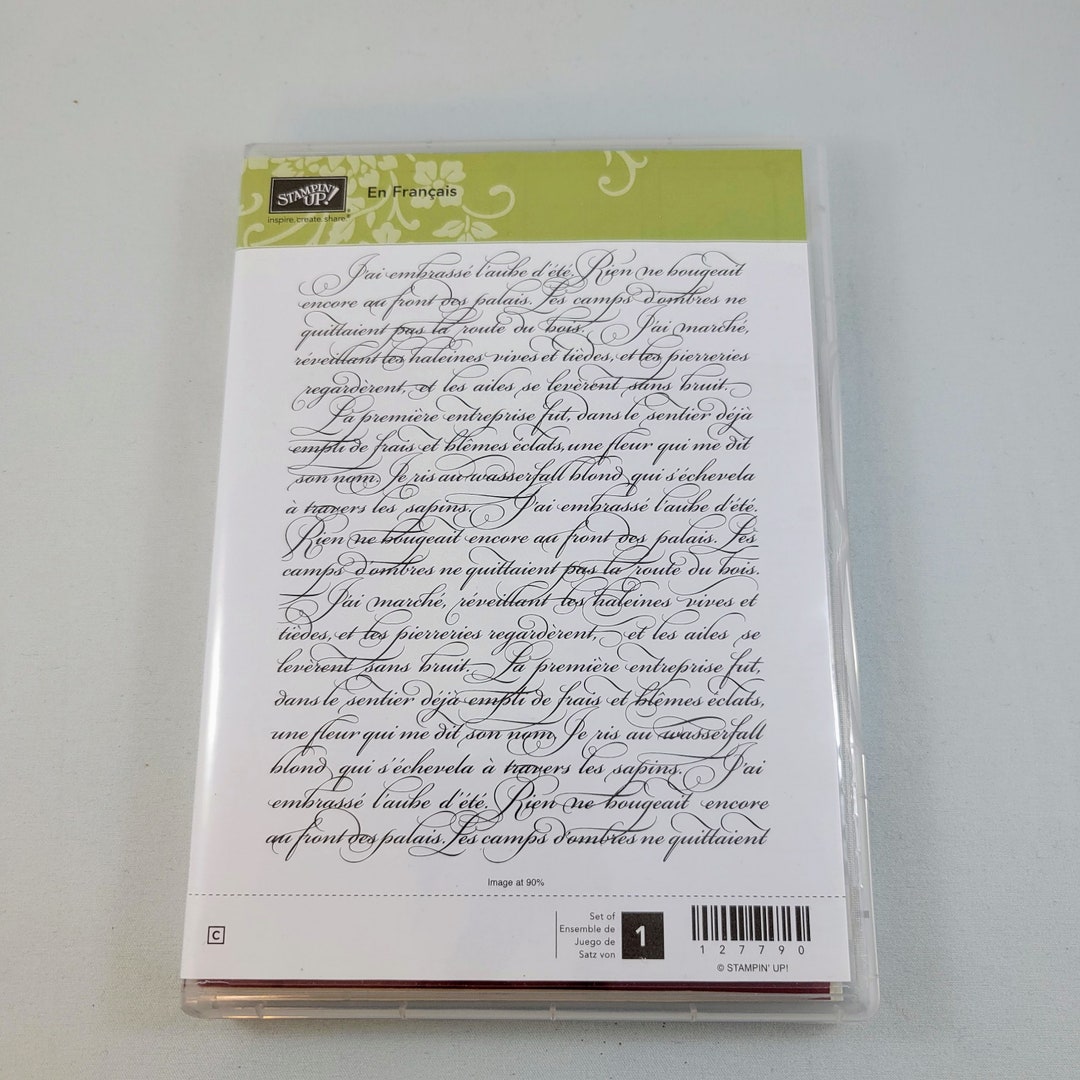 STAMPIN' UP!
inspire.create.share®
En Français
J'ai embrassé l'aube d'été. Rien ne bougeait
encore au front des palais. Les camps d'ombres ne
quittaient pas la route du bois. J'ai marché,
réveillant les haleines vives et tièdes, et les pierreries
regardèrent, et les ailes se levèrent sans bruit.
La première entreprise fut, dans le sentier déjà
empli de frais et blêmes éclats, une fleur qui me dit
son nom. Je ris au wasserfall blond qui s'échevela
à travers les sapins. J'ai embrassé l'aube d'été.
Rien ne bougeait encore au front des palais. Les
camps d'ombres ne quittaient pas la route du bois.
J'ai marché, réveillant les haleines vives et
tièdes, et les pierreries regardèrent, et les ailes se
levèrent sans bruit. La première entreprise fut,
dans le sentier déjà empli de frais et blêmes éclats,
une fleur qui me dit son nom. Je ris au wasserfall
blond qui s'échevela à travers les sapins. J'ai
embrassé l'aube d'été. Rien ne bougeait encore
au front des palais. Les camps d'ombres ne quittaient
Image at 90%
C
Set of
Ensemble de
Juego de
Satz von
1
127790
© STAMPIN' UP!